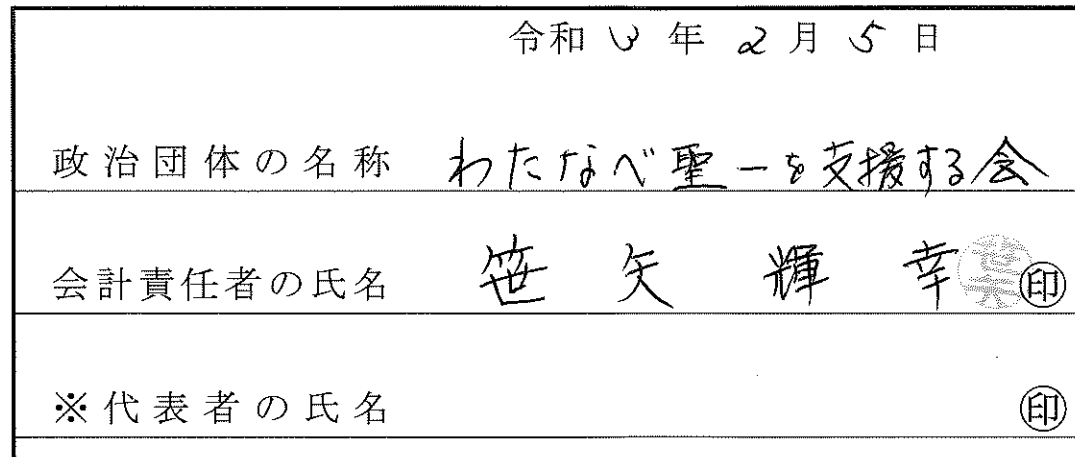 令和 3 年 2 月 5 日
政治団体の名称 わたなべ聖一を支援する会
会計責任者の氏名 笹矢輝幸 ㊞
※代表者の氏名 ㊞